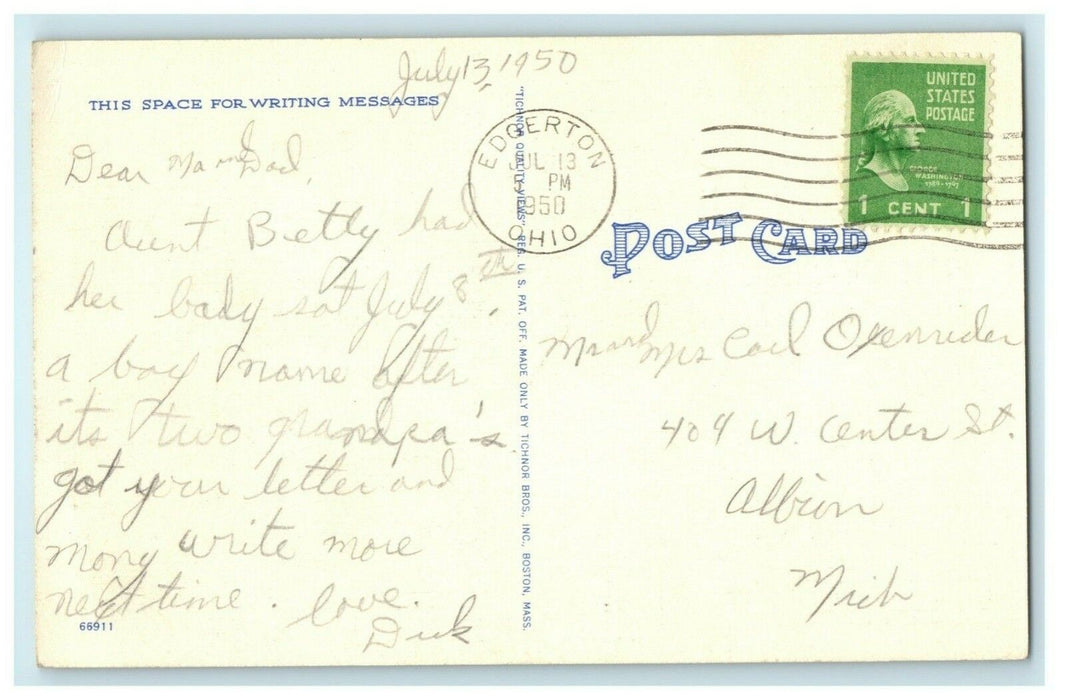 July 13, 1950
THIS SPACE FOR WRITING MESSAGES
Dear Ma and Dad,
Aunt Betty had
her bady sat July 8th.
a boy name after
its two grandpa's
got your letter and
mony write more
next time. love.
Dick
66911
"TICHNOR QUALITY VIEWS" REG. U. S. PAT. OFF. MADE ONLY BY TICHNOR BROS., INC., BOSTON, MASS.
EDGERTON
JUL 13
5 PM
1950
OHIO
UNITED
STATES
POSTAGE
GEORGE
WASHINGTON
1789-1797
1 CENT 1
POST CARD
Mr and Mrs Carl Oxenrider
404 W. Center St.
Albion
Mich